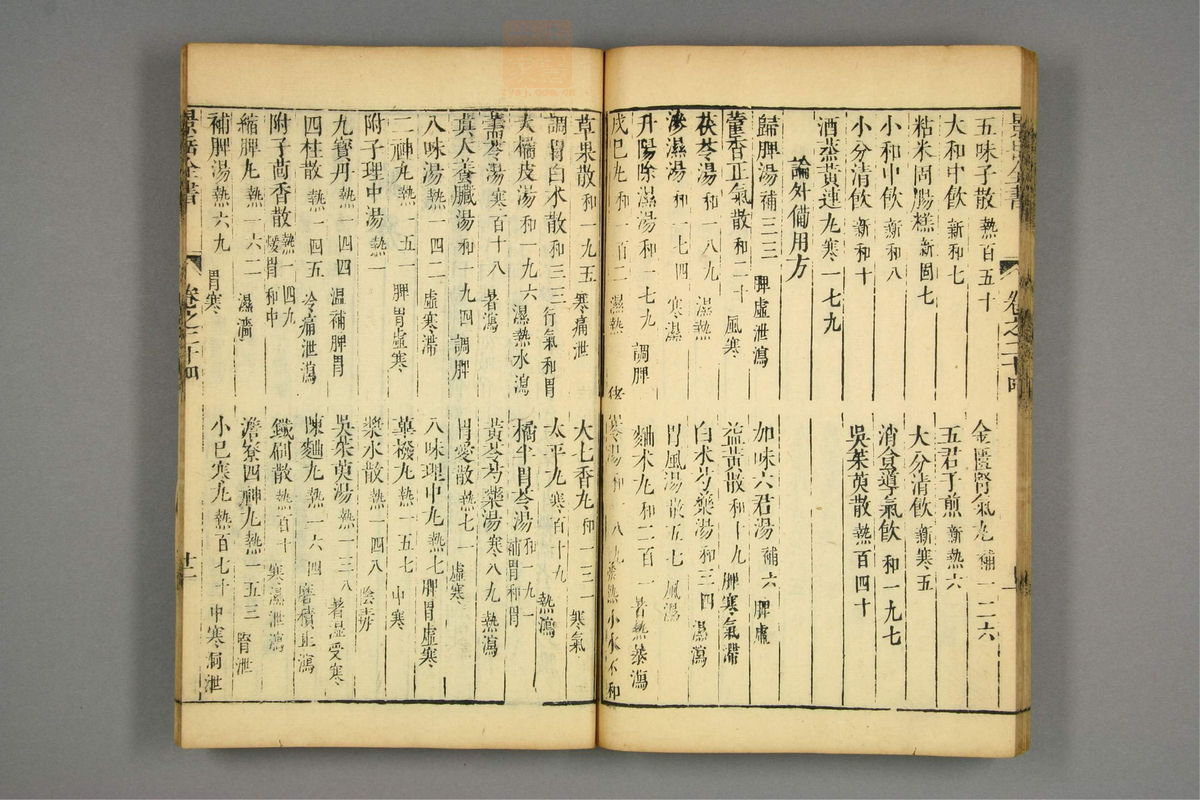 景岳全書 卷之二十四
五味子散 熱百五十 金匱腎氣丸 補一二六
大和中飲 新和七 五君子煎 新熱六
粘米固腸糕 新固七 大分清飲 新寒五
小和中飲 新和八 消食導氣飲 和一九七
小分清飲 新和十 吳茱萸散 熱百四十
酒蒸黃連丸 寒一七九
論外備用方
歸脾湯 補三三 脾虛泄瀉 加味六君湯 補六 脾虛
藿香正氣散 和二十 風寒 益黃散 和十九 脾寒氣滯
茯苓湯 和一八九 濕熱 白朮芍藥湯 和三四 濕瀉
滲濕湯 和一七四 寒濕 胃風湯 散五七 風濕
升陽除濕湯 和一七九 調脾 麯朮丸 和二百一 暑熱暴瀉
戊己丸 和一百二 濕熱 苓湯 和 八九 小水不利
草果散 和一九五 寒痛泄 大七香丸 和一三一 寒氣
調胃白朮散 和三三 行氣和胃 太平丸 寒百十九 熱瀉
大橘皮湯 和一九六 濕熱水瀉 橘半胃苓湯 和一九一 補胃和胃
薷苓湯 寒百十八 暑瀉 黃芩芍藥湯 寒八九 熱瀉
真人養臟湯 和一九四 調脾 胃愛散 熱七一 虛寒
八味湯 熱四二 虛寒滯 八味理中丸 熱七 脾胃虛寒
二神丸 熱一五一 脾胃虛寒 蓽撥丸 熱一五七 中寒
附子理中湯 熱一 漿水散 熱一四八 陰毒
九寶丹 熱一四四 溫補脾胃 吳茱萸湯 熱一三八 暑濕受寒
四柱散 熱一四五 冷痛泄瀉 陳麯丸 熱一六四 磨積止瀉
附子茴香散 熱一四九 煖胃和中 鐵刷散 熱百十 寒濕泄瀉
縮脾丸 熱一六二 濕滯 澹寮四神丸 熱一五三 腎泄
補脾湯 熱六九 胃寒 小已寒丸 熱百七十 中寒洞泄
景岳全書 卷之二十四 廿一